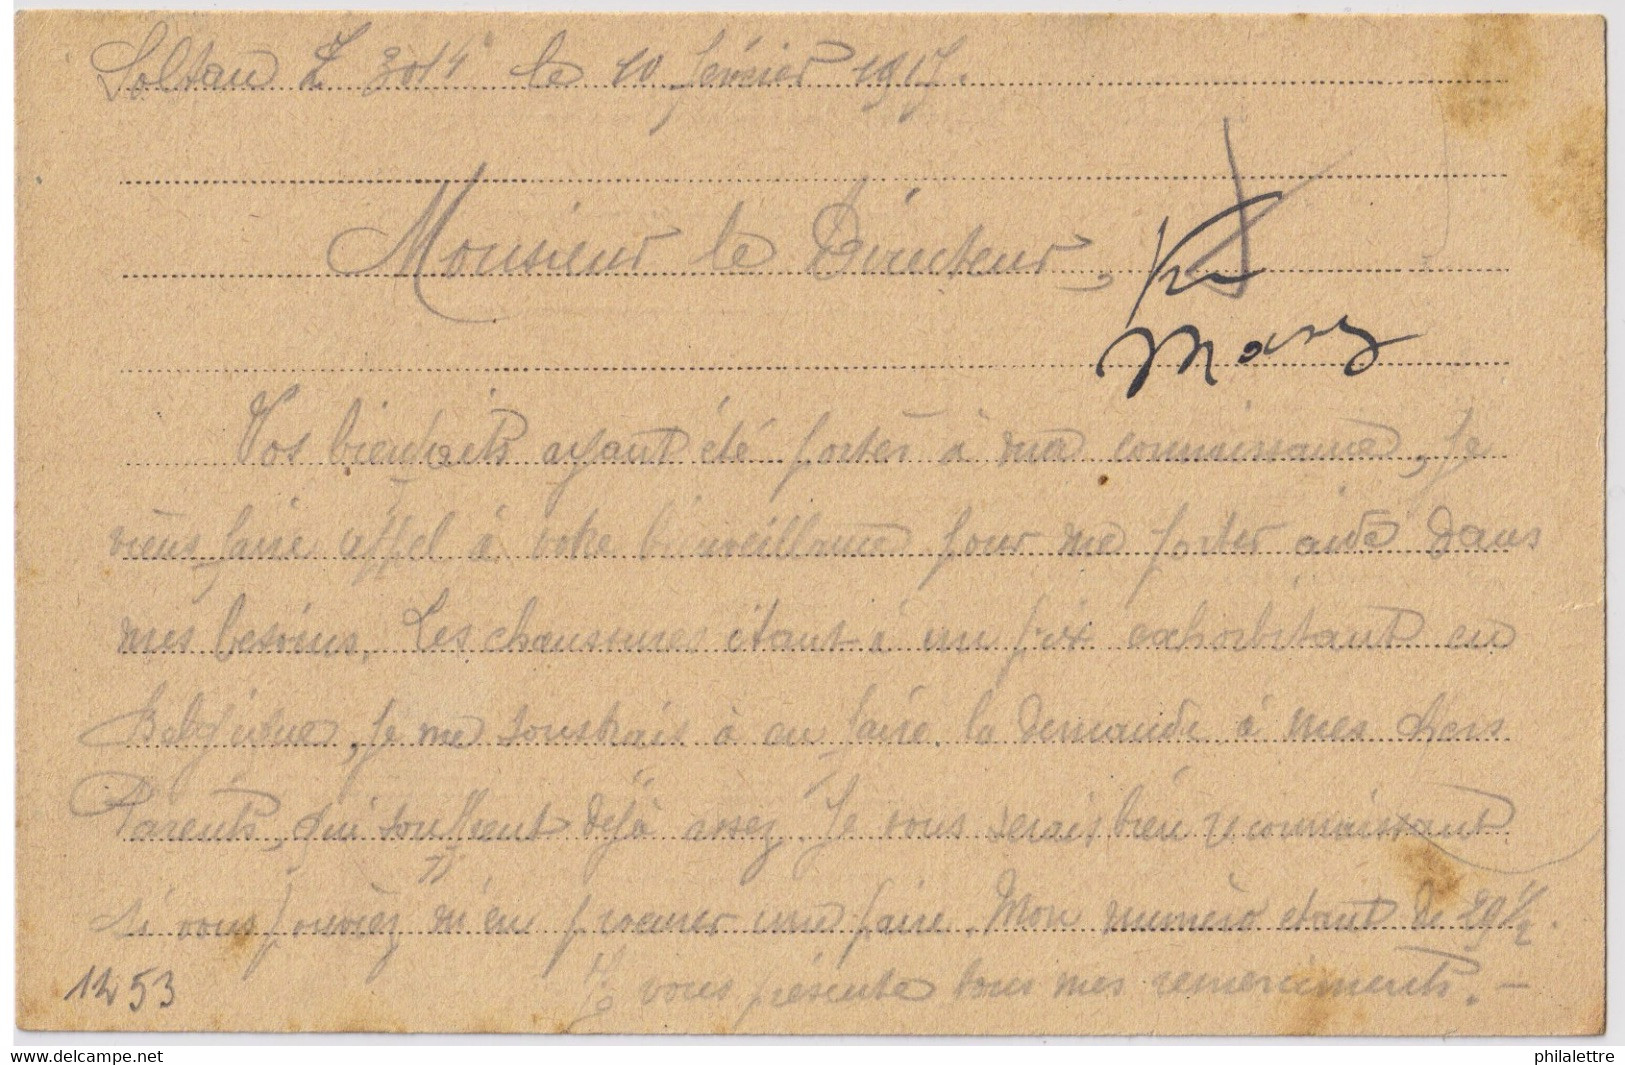 Soltau Z 3014 le 10 février 1917.
Monsieur le Directeur,
Vos bienfaits ayant été portés à ma connaissance, je
viens faire appel à votre bienveillance pour me porter aide dans
mes besoins. Les chaussures étant à un prix exhorbitant en
Belgique, je me soustrais à en faire la demande à mes chers
Parents, qui souffrent déjà assez. Je vous serais bien reconnaissant
si vous pouviez m'en procurer une paire. Mon numéro étant de 29 1/2.
Je vous présente tous mes remerciments. —
1253
delcampe.net
philalettre